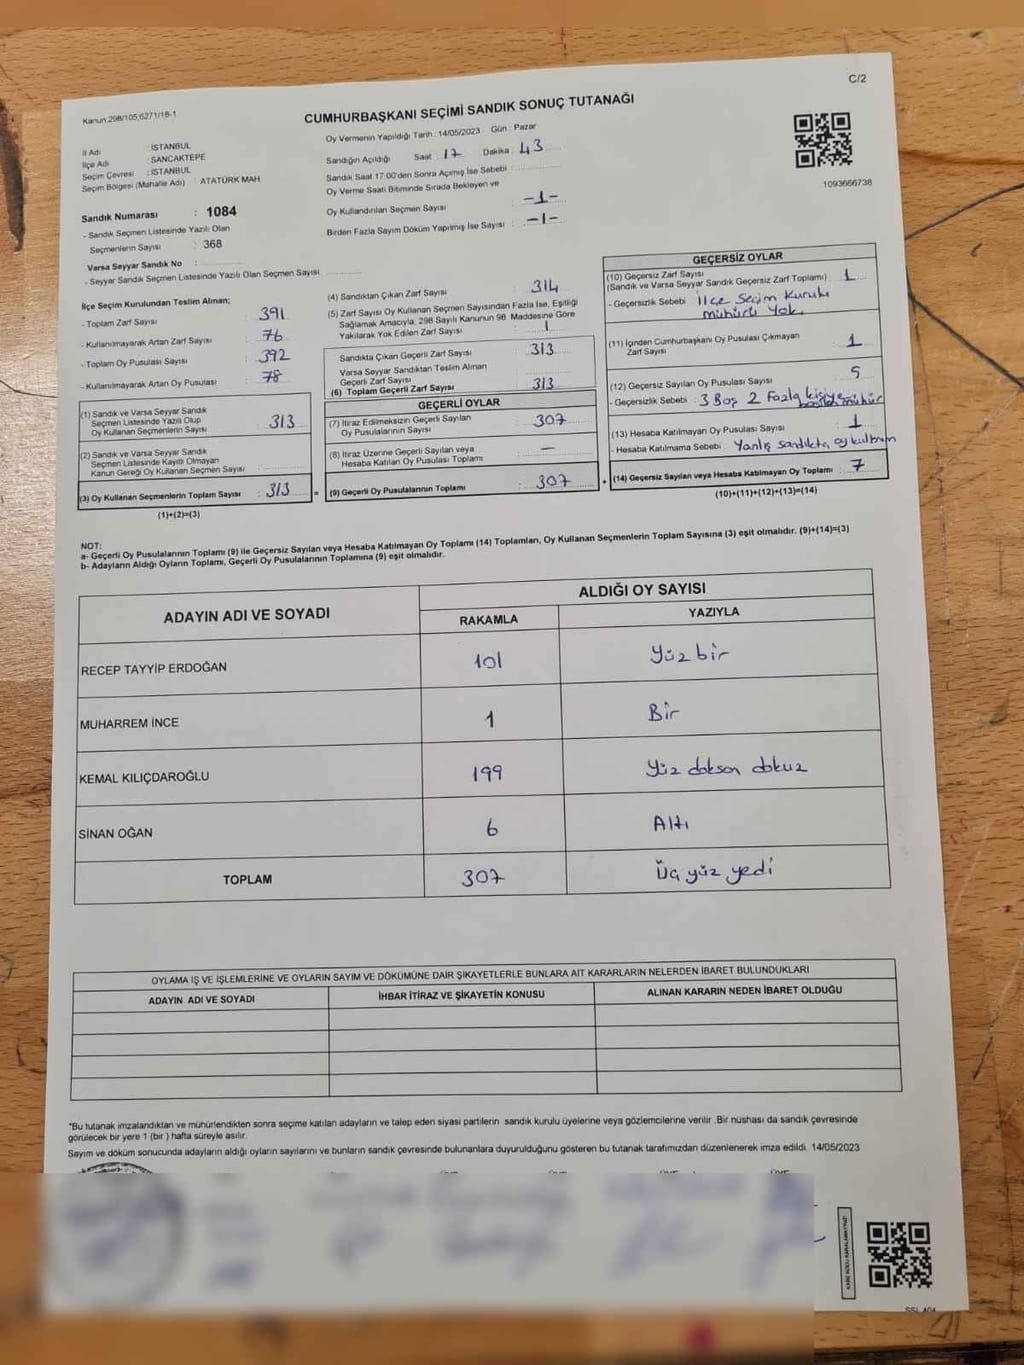 C/2
Kanun:298/105;6271/18-1
CUMHURBAŞKANI SEÇİMİ SANDIK SONUÇ TUTANAĞI
İl Adı : İSTANBUL
İlçe Adı : SANCAKTEPE
Seçim Çevresi : İSTANBUL
Seçim Bölgesi (Mahalle Adı) : ATATÜRK MAH.
Oy Vermenin Yapıldığı Tarih : 14/05/2023 Gün : Pazar
Sandığın Açıldığı Saat : 17 Dakika : 43
Sandık Saat 17:00'den Sonra Açımış İse Sebebi :
Oy Verme Saati Bitiminde Sırada Bekleyen ve
Oy Kullandırılan Seçmen Sayısı : -1-
Birden Fazla Sayım Döküm Yapılmış İse Sayısı : -1-
1093666738
Sandık Numarası : 1084
- Sandık Seçmen Listesinde Yazılı Olan
Seçmenlerin Sayısı : 368
Varsa Seyyar Sandık No :
- Seyyar Sandık Seçmen Listesinde Yazılı Olan Seçmen Sayısı
İlçe Seçim Kurulundan Teslim Alınan;
- Toplam Zarf Sayısı : 391
- Kullanılmayarak Artan Zarf Sayısı : 76
- Toplam Oy Pusulası Sayısı : 392
- Kullanılmayarak Artan Oy Pusulası : 78
(1) Sandık ve Varsa Seyyar Sandık
Seçmen Listesinde Yazılı Olup
Oy Kullanan Seçmenlerin Sayısı : 313
(2) Sandık ve Varsa Seyyar Sandık
Seçmen Listesinde Kayıtlı Olmayan
Kanun Gereği Oy Kullanan Seçmen Sayısı :
(3) Oy Kullanan Seçmenlerin Toplam Sayısı : 313
(1)+(2)=(3)
(4) Sandıktan Çıkan Zarf Sayısı : 314
(5) Zarf Sayısı Oy Kullanan Seçmen Sayısından Fazla İse, Eşitliği
Sağlamak Amacıyla; 298 Sayılı Kanunun 98. Maddesine Göre
Yakılarak Yok Edilen Zarf Sayısı : 1
Sandıkta Çıkan Geçerli Zarf Sayısı : 313
Varsa Seyyar Sandıktan Teslim Alınan
Geçerli Zarf Sayısı :
(6) Toplam Geçerli Zarf Sayısı : 313
GEÇERLİ OYLAR
(7) İtiraz Edilmeksizin Geçerli Sayılan
Oy Pusulalarının Sayısı : 307
(8) İtiraz Üzerine Geçerli Sayılan veya
Hesaba Katılan Oy Pusulası Toplamı : —
(9) Geçerli Oy Pusulalarının Toplamı : 307
GEÇERSİZ OYLAR
(10) Geçersiz Zarf Sayısı
(Sandık ve Varsa Seyyar Sandık Geçersiz Zarf Toplamı) : 1
- Geçersizlik Sebebi : İlçe Seçim Kurulu
mühürü Yok.
(11) İçinden Cumhurbaşkanı Oy Pusulası Çıkmayan
Zarf Sayısı : 1
(12) Geçersiz Sayılan Oy Pusulası Sayısı : 5
- Geçersizlik Sebebi : 3 Boş 2 Fazla kişiye
basılan mühür
(13) Hesaba Katılmayan Oy Pusulası Sayısı : 1
- Hesaba Katılmama Sebebi : Yanlış sandıkta oy kullanım
(14) Geçersiz Sayılan veya Hesaba Katılmayan Oy Toplamı : 7
(10)+(11)+(12)+(13)=(14)
NOT:
a- Geçerli Oy Pusulalarının Toplamı (9) ile Geçersiz Sayılan veya Hesaba Katılmayan Oy Toplamı (14) Toplamları, Oy Kullanan Seçmenlerin Toplam Sayısına (3) eşit olmalıdır. (9)+(14)=(3)
b- Adayların Aldığı Oyların Toplamı, Geçerli Oy Pusulalarının Toplamına (9) eşit olmalıdır.
ADAYIN ADI VE SOYADI ALDIĞI OY SAYISI
RAKAMLA YAZIYLA
RECEP TAYYİP ERDOĞAN 101 Yüz bir
MUHARREM İNCE 1 Bir
KEMAL KILIÇDAROĞLU 199 Yüz doksan dokuz
SİNAN OĞAN 6 Altı
TOPLAM 307 Üç yüz yedi
OYLAMA İŞ VE İŞLEMLERİNE VE OYLARIN SAYIM VE DÖKÜMÜNE DAİR ŞİKAYETLERLE BUNLARA AİT KARARLARIN NELERDEN İBARET BULUNDUKLARI
ADAYIN ADI VE SOYADI İHBAR İTİRAZ VE ŞİKAYETİN KONUSU ALINAN KARARIN NEDEN İBARET OLDUĞU
*Bu tutanak imzalandıktan ve mühürlendikten sonra seçime katılan adayların ve talep eden siyasi partilerin sandık kurulu üyelerine veya gözlemcilerine verilir .Bir nüshası da sandık çevresinde
görülecek bir yere 1 (bir ) hafta süreyle asılır.
Sayım ve döküm sonucunda adayların aldığı oyların sayılarını ve bunların sandık çevresinde bulunanlara duyurulduğunu gösteren bu tutanak tarafımızdan düzenlenerek imza edildi. 14/05/2023